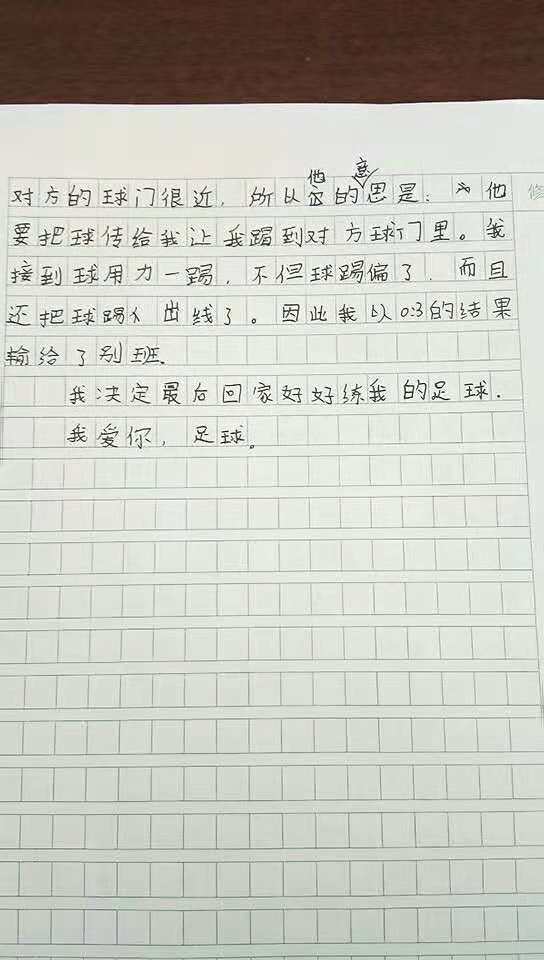 他 意
对方的球门很近，所以的思是：他
要把球传给我让我踢到对方球门里。我
接到球用力一踢，不但球踢偏了．而且
还把球踢出线了。因此我以0:3的结果
输给了别班．
我决定最后回家好好练我的足球．
我爱你，足球。
修